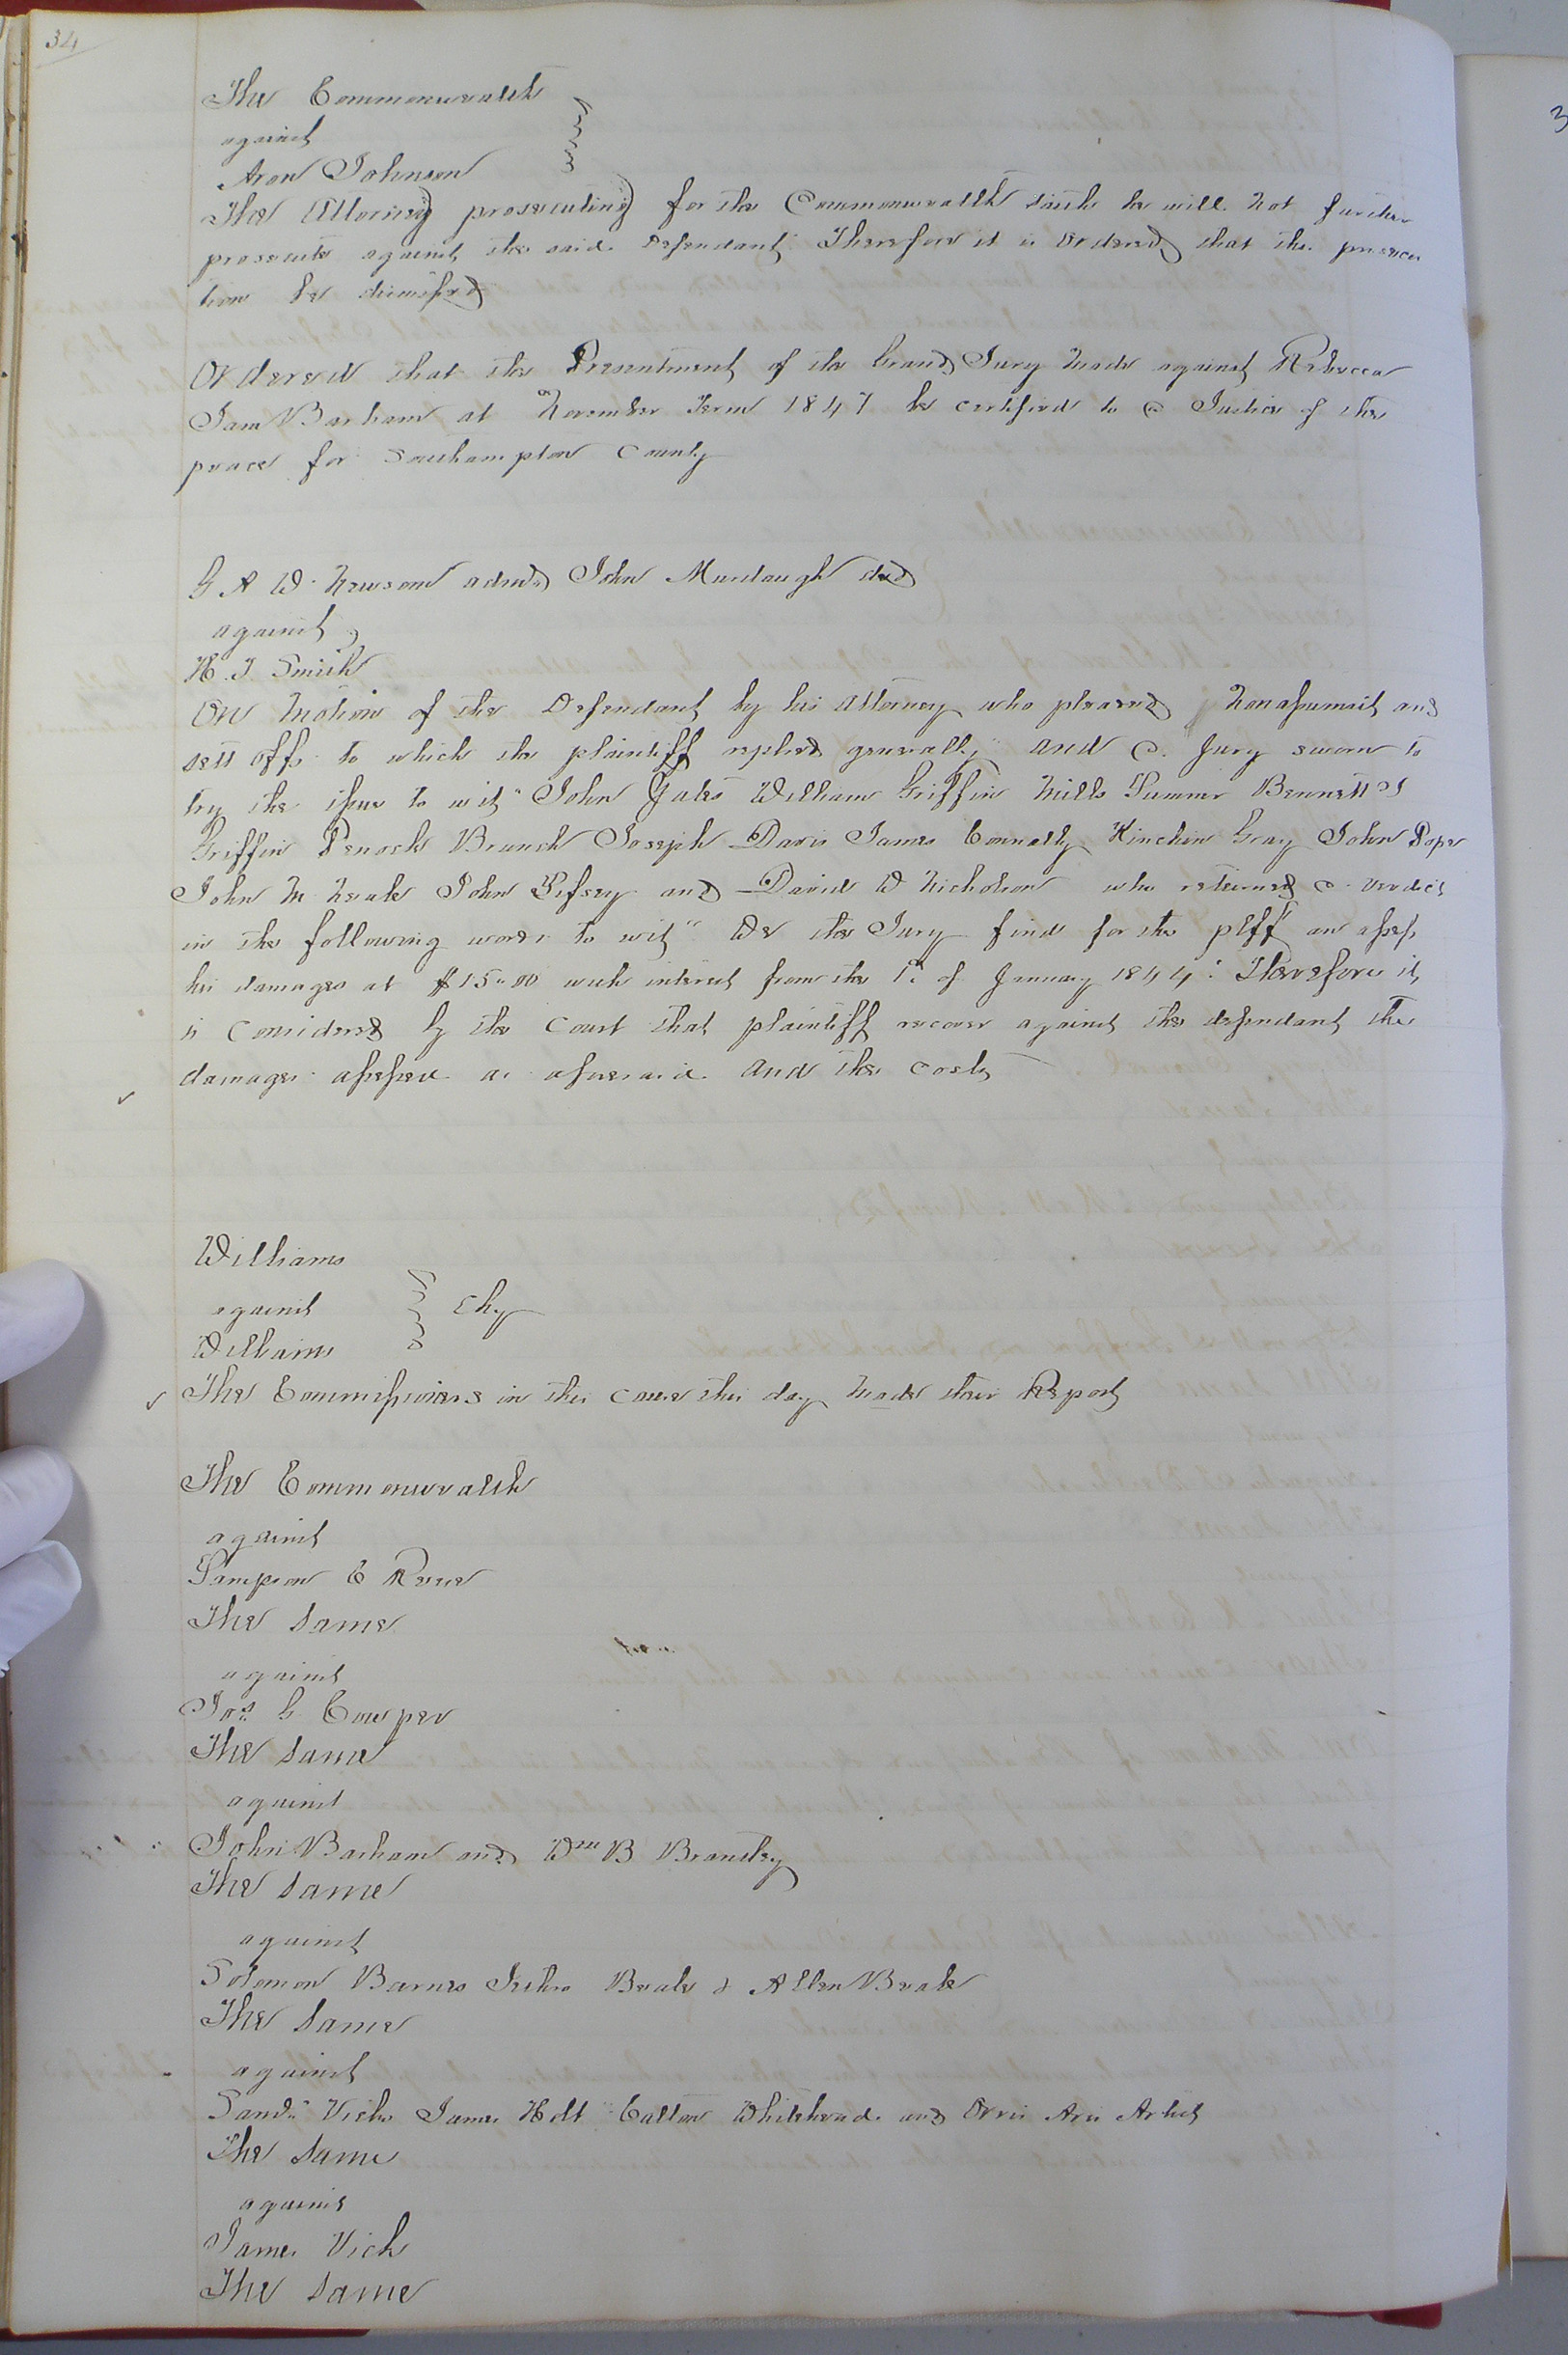 34
The Commonwealth
against
Aron Johnson
The Attorney prosecuting for the Commonwealth saith he will not further
prosecute against the said Defendant Therefore it is Ordered that the prosecu
tion be dismissed
Ordered that the Presentment of the Grand Jury made against Rebecca
Jane Barham at November Term 1847 be certified to a Justice of the
peace for Southampton County
G A W Newsom admr John Murdaugh decd
against
H. J. Smith
On motion of the Defendant by his attorney who pleaded Nonassumsit and
sett offs to which the plaintiff replied generally and a Jury sworn to
try the issue to wit" John Gales William Griffin Mills Sumner Bennett J
Griffin Penock Branch Joseph Davis James Connally Hinchin Gray John Pope
John M Neale John and David W Nicholson who returned a verdict
in the following words to wit" We the Jury find for the plff an assess
his damages at $15.00 with interest from the 1st of January 1844" Therefore it
is Considered by the Court that plaintiff recover against the defendant the
damages assessed as aforesaid and the costs
Williams
against Chy
Williams
The Commissioners in this cause this day made their Report
The Commonwealth
against
Sampson C Reese
The Same
against
Jos. G Cowper
The Same
against
John Barham and Wm B Brantley
The Same
against
Solomon Barnes Beale & Allen Beale
The Same
against
Sandy Vick James Holt Whitehead and Artist
The Same
against
James Vick
The Same
3